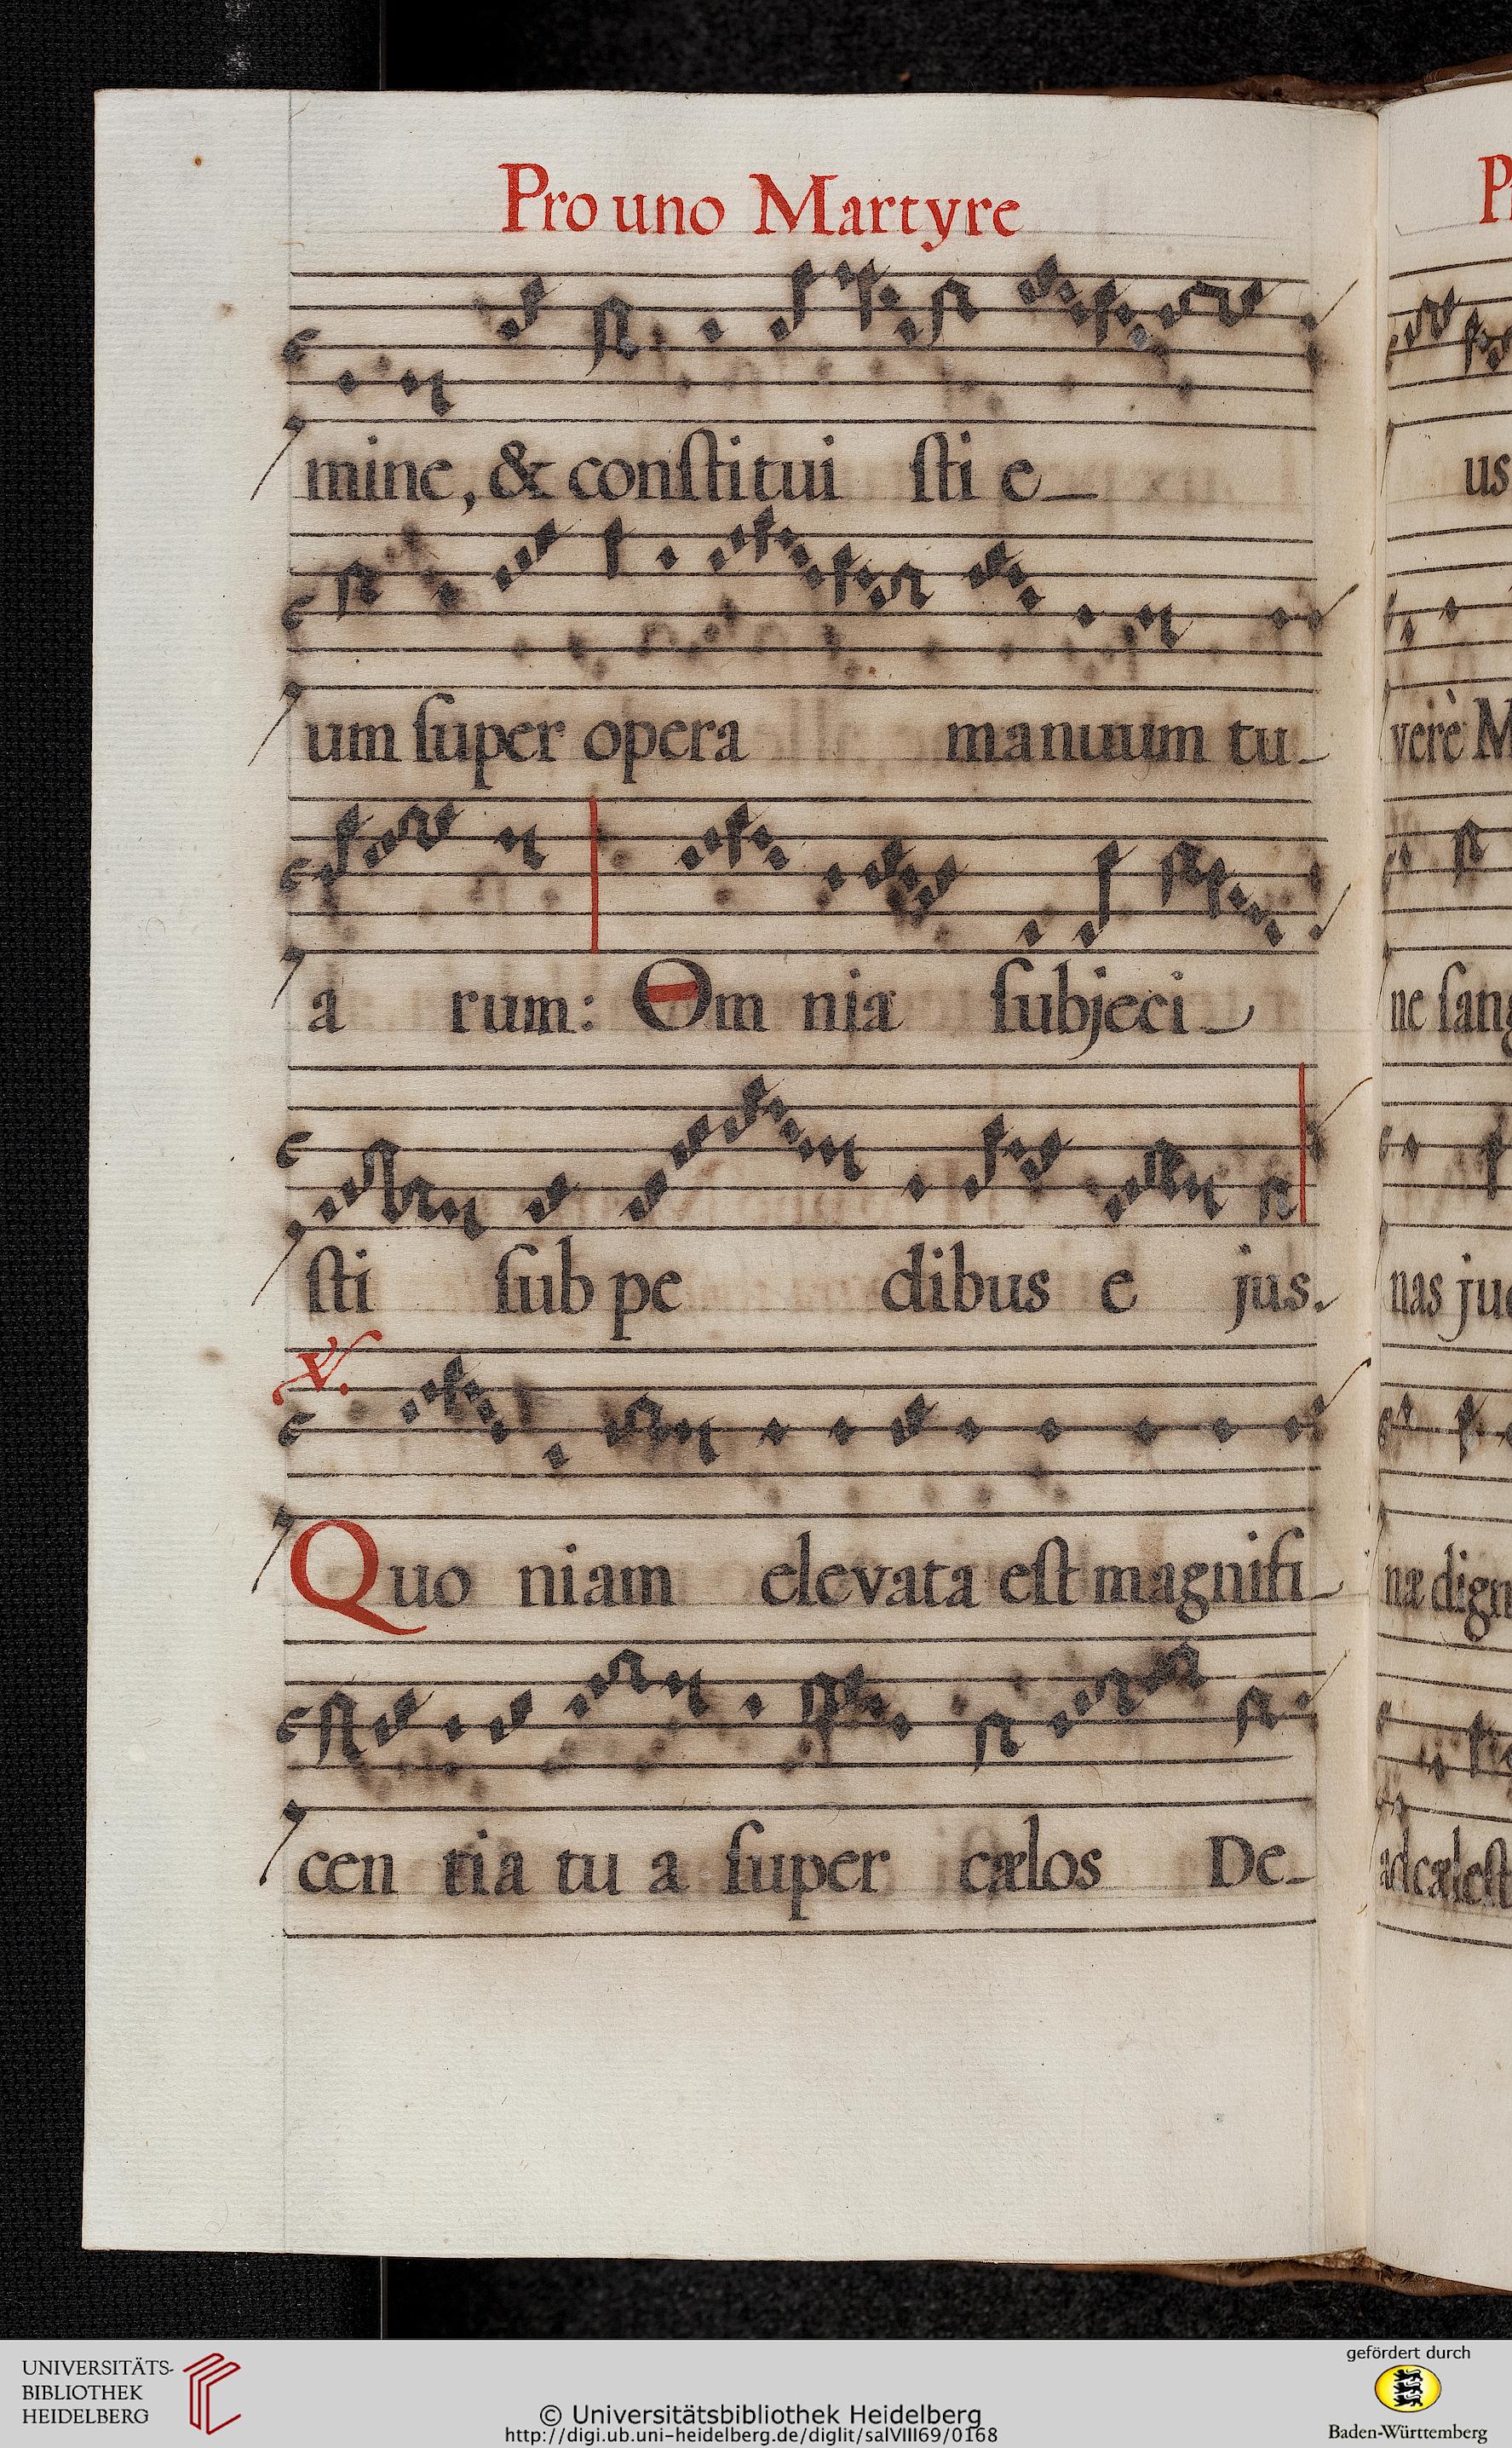 Pro uno Martyre
mine, & conſtitui ſti e_
um ſuper opera manuum tu_
a rum: Om nia ſubjeci_
ſti ſub pe dibus e jus.
℣.
Quo niam elevata eſt magnifi_
cen tia tu a ſuper cælos De_
us
verè M
ne ſang
nas ju
næ dign
ad cæleſt
UNIVERSITÄTS-
BIBLIOTHEK
HEIDELBERG
© Universitätsbibliothek Heidelberg
http://digi.ub.uni-heidelberg.de/diglit/salVIII69/0168
gefördert durch
Baden-Württemberg